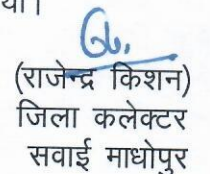 था।
(राजेन्द्र किशन)
जिला कलेक्टर
सवाई माधोपुर